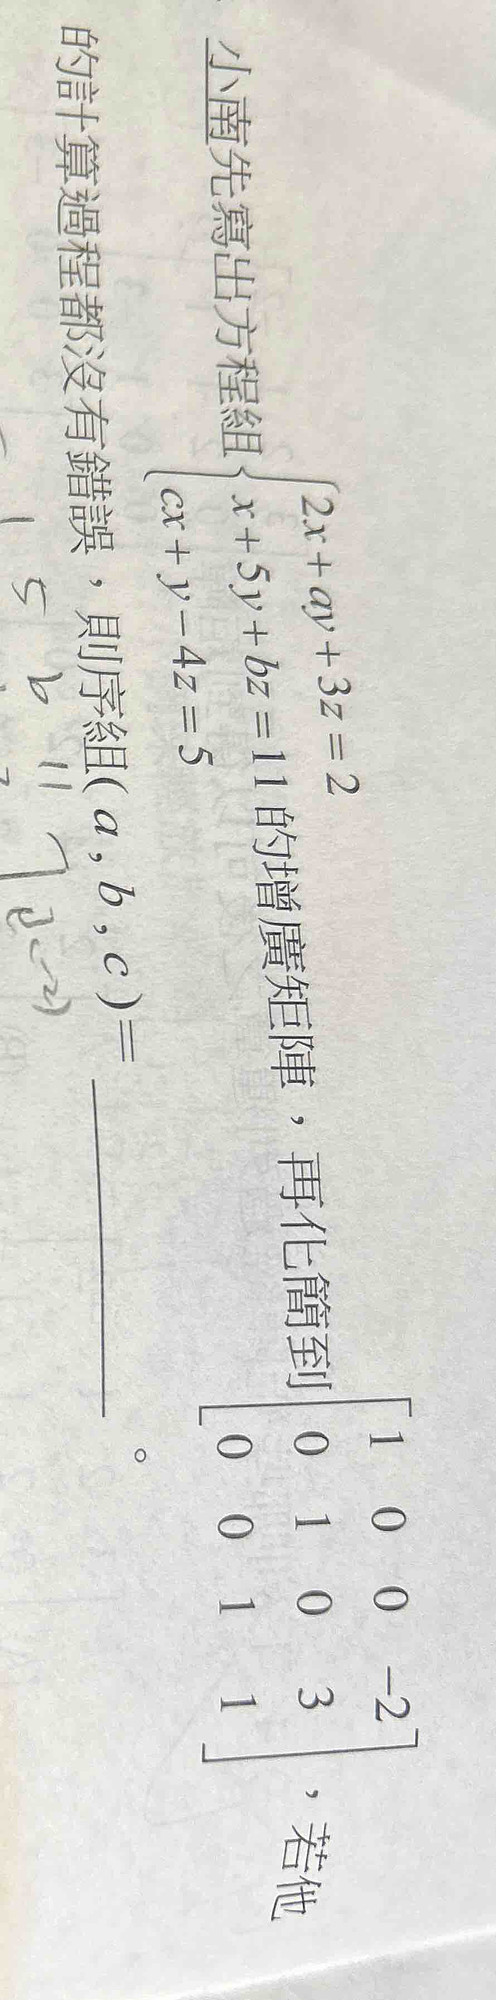 小南先寫出方程組 { 2x+ay+3z=2
x+5y+bz=11 的增廣矩陣，再化簡到 [ 1 0 0 -2
cx+y-4z=5
0 1 0 3
0 0 1 1 ]，若他
的計算過程都沒有錯誤，則序組(a,b,c)=＿＿＿＿＿＿。
5 b 11